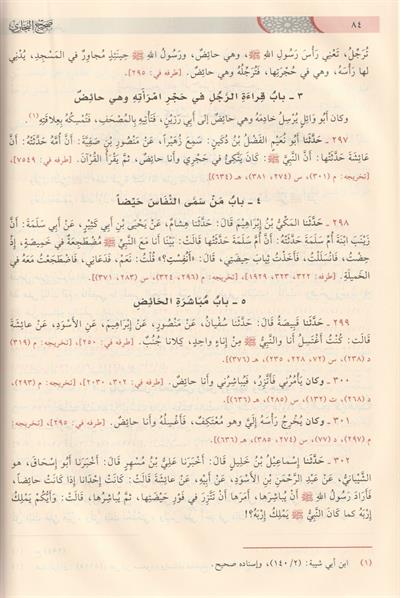 ٨٤ صحيح البخاري
تُرَجِّلُ، تَعْنِي رَأْسَ رَسُولِ اللهِ ﷺ، وهي حائِضٌ، ورَسُولُ اللهِ ﷺ حِينَئِذٍ مُجاوِرٌ في المَسْجِدِ، يُدْنِي
لها رَأْسَهُ، وهي في حُجْرَتِها، فَتُرَجِّلُهُ وهي حائِضٌ. [طرفه في: ٢٩٥].
٣ ـ بابُ قِراءَةِ الرَّجُلِ في حَجْرِ امْرَأَتِهِ وهي حائِضٌ
وكان أبُو وائِلٍ يُرْسِلُ خادِمَهُ وهي حائِضٌ إلى أبي رَزِينٍ، فَتَأْتِيهِ بِالمُصْحَفِ، فَتُمْسِكُهُ بِعِلاقَتِهِ(١).
٢٩٧ ـ حَدَّثَنا أبُو نُعَيْمٍ الفَضْلُ بْنُ دُكَيْنٍ: سَمِعَ زُهَيْراً، عَنْ مَنْصُورِ بْنِ صَفِيَّةَ: أنَّ أُمَّهُ حَدَّثَتْهُ: أنَّ
عائِشَةَ حَدَّثَتْها: أنَّ النَّبِيَّ ﷺ: كانَ يَتَّكِئُ في حَجْرِي وأنا حائِضٌ، ثُمَّ يَقْرَأُ القُرْآنَ. [طرفه في: ٧٥٤٩].
[تخريجه: م (٣٠١)، س (٢٧٤، ٣٨١)، هـ (٦٣٤)].
٤ ـ بابُ مَنْ سَمَّى النِّفَاسَ حَيْضاً
٢٩٨ ـ حَدَّثَنا المَكِّيُّ بْنُ إبْرَاهِيمَ قَالَ: حَدَّثَنا هِشامٌ، عَنْ يَحْيى بْنِ أبي كَثِيْرٍ، عَنْ أبي سَلَمَةَ: أنَّ
زَيْنَبَ ابْنَةَ أُمِّ سَلَمَةَ حَدَّثَتْهُ: أنَّ أُمَّ سَلَمَةَ حَدَّثَتْها قالَتْ: بَيْنا أنا مَعَ النَّبِيِّ ﷺ مُضْطَجِعَةٌ في خَمِيصَةٍ، إذْ
حِضْتُ، فانْسَلَلْتُ، فَأخَذْتُ ثِيابَ حِيضَتِي، قالَ: «أنُفِسْتِ؟». قُلْتُ: نَعَمْ، فَدَعانِي، فاضْطَجَعْتُ مَعَهُ في
الخَمِيلَةِ. [طرفه: ٣٢٢، ٣٢٣، ١٩٢٩]. [تخريجه: م (٢٩٦، ٣٢٤)، س (٢٨٣، ٣٧١)].
٥ ـ بابُ مُبَاشَرَةِ الحَائِضِ
٢٩٩ ـ حَدَّثَنا قَبِيصَةُ قَالَ: حَدَّثَنا سُفْيانُ، عَنْ مَنْصُورٍ، عَنْ إبْراهِيمَ، عَنِ الأسْوَدِ، عَنْ عائِشَةَ
قالَتْ: كُنْتُ أغْتَسِلُ أنا والنَّبِيُّ ﷺ مِنْ إناءٍ واحِدٍ، كِلانا جُنُبٌ. [طرفه في: ٢٥٠]. [تخريجه: م (٣١٩)
د (٢٣٨)، س (٧٢، ٢٢٨، ٢٣٥)، هـ (٣٧٦)].
٣٠٠ ـ وكان يَأْمُرُنِي فأتَّزِرُ، فَيُباشِرُنِي وأنا حائِضٌ. [طرفه في: ٣٠٢، ٢٠٣٠]، [تخريجه: م (٢٩٣)،
د (٢٦٨)، ت (١٣٢)، س (٢٨٥)، هـ (٦٣٦)].
٣٠١ ـ وكان يُخْرِجُ رَأْسَهُ إلَيَّ وهو مُعْتَكِفٌ، فأغْسِلُهُ وأنا حائِضٌ. [طرفه في: ٢٩٥]. [تخريجه:
م (٢٩٧)، د (٧٧)، س (٢٧٤، ٣٨٥)، هـ (٦٣٦)].
٣٠٢ ـ حَدَّثَنا إسْماعِيلُ بْنُ خَلِيلٍ قَالَ: أخْبَرَنا عَلِيُّ بْنُ مُسْهِرٍ قَالَ: أخْبَرَنا أبُو إسْحاقَ، هو
الشَّيْبانِيُّ، عَنْ عَبْدِ الرَّحْمنِ بْنِ الأسْوَدِ، عَنْ أبِيْهِ، عَنْ عائِشَةَ قالَتْ: كانَتْ إحْدانا إذا كانَتْ حائِضاً،
فَأرَادَ رَسُولُ اللهِ ﷺ أنْ يُباشِرَها، أمَرَها أنْ تَتَّزِرَ في فَوْرِ حَيْضَتِها، ثُمَّ يُباشِرُها، قالَتْ: وأيُّكُمْ يَمْلِكُ
إرْبَهُ كما كانَ النَّبِيُّ ﷺ يَمْلِكُ إرْبَهُ؟!
(١) ابن أبي شيبة: (١٤٠/٢)، وإسناده صحيح.